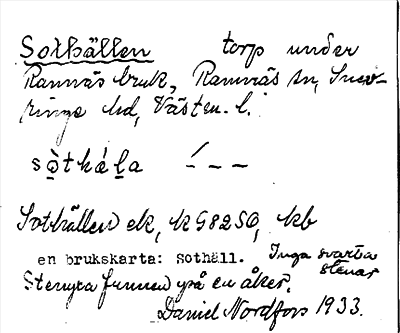 Sothällen torp under
Ramnäs bruk, Ramnäs sn, Snev-
ringe hd, Västm. l.
sò̤thá̤l̲a ´ – –
Sothällen ek, kb
en brukskarta: Sothäll. Inga svarta
stenar
Stenyta funnen på en åker.
Daniel Nordfors 1933.